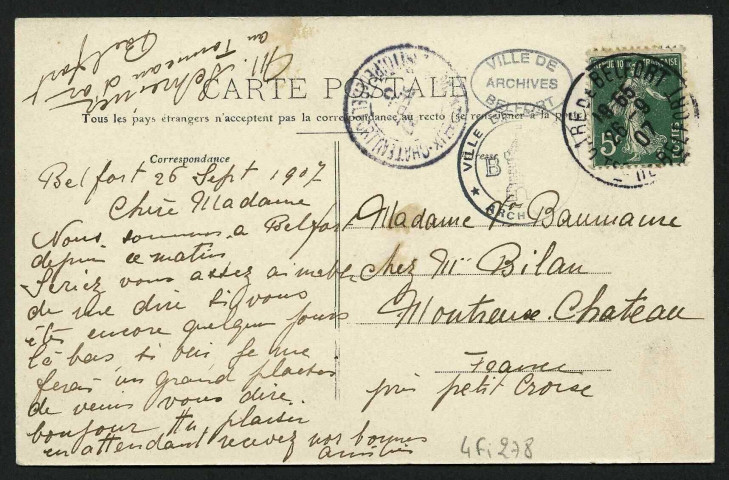 M. Schreiner
au Tonneau d'or
Belfort
CARTE POSTALE
Tous les pays étrangers n'acceptent pas la correspondance au recto (se renseigner à la
Correspondance
Belfort 26 Sept 1907
Chère Madame
Nous sommes à Belfort
depuis ce matin
Seriez vous assez aimable
de me dire si vous
êtes encore quelques jours
là bas si oui je me
ferais un grand plaisir
de venir vous dire
bonjour au plaisir
en attendant, recevez nos bonnes
amitiés
Madame Ve Baumann
chez Mr Bilan
Montreux-Chateau
France
près petit Croise
VILLE DE
ARCHIVES
BELFORT
VILLE
B
ARCH
BELFORT
26-9
07
5c
POSTES
4Fi278